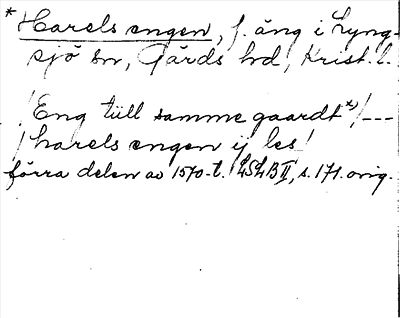 * Harels engen, f. äng i Lyng-
sjö sn, Gärds hd, Krist. l.
/Eng tüll samme gaardt*)/---
/harels engen ij les/
förra delen av 1570-t. LSLB II, s. 171. orig.